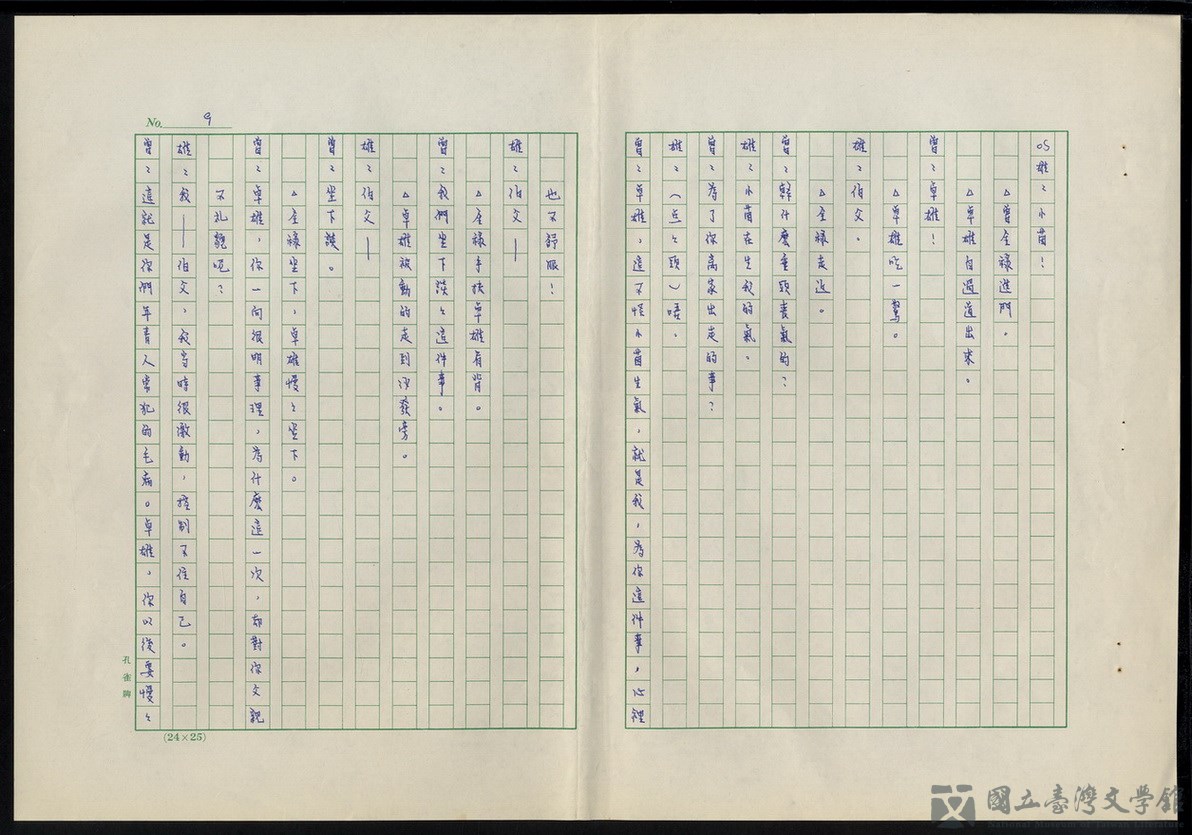 OS雄:小茵!
△曾全祿進門。
△卓雄自過道出來。
曾:卓雄!
△卓雄吃一驚。
雄:伯父。
△全祿走近。
曾:幹什麼垂頭喪氣的?
雄:小茵在生我的氣。
曾:為了你離家出走的事?
雄:(点々頭)唔.
曾:卓雄,這不怪小茵生氣,就是我,為你這件事,心裡
也不舒服!
雄:伯父——
△全祿手扶卓雄肩背。
曾:我們坐下談々這件事。
△卓雄被動的走到沙發旁。
雄:伯父——
曾:坐下談。
△全祿坐下,卓雄慢々坐下。
曾:卓雄,你一向很明事理,為什麼這一次,却對你父親
不礼貌呢?
雄:我——伯父,我當時很激動,控制不住自己。
曾:這就是你們年青人常犯的毛病。卓雄,你以後要慢々
No. 9
(24×25)
孔雀牌
國立臺灣文學館
National Museum of Taiwan Literature